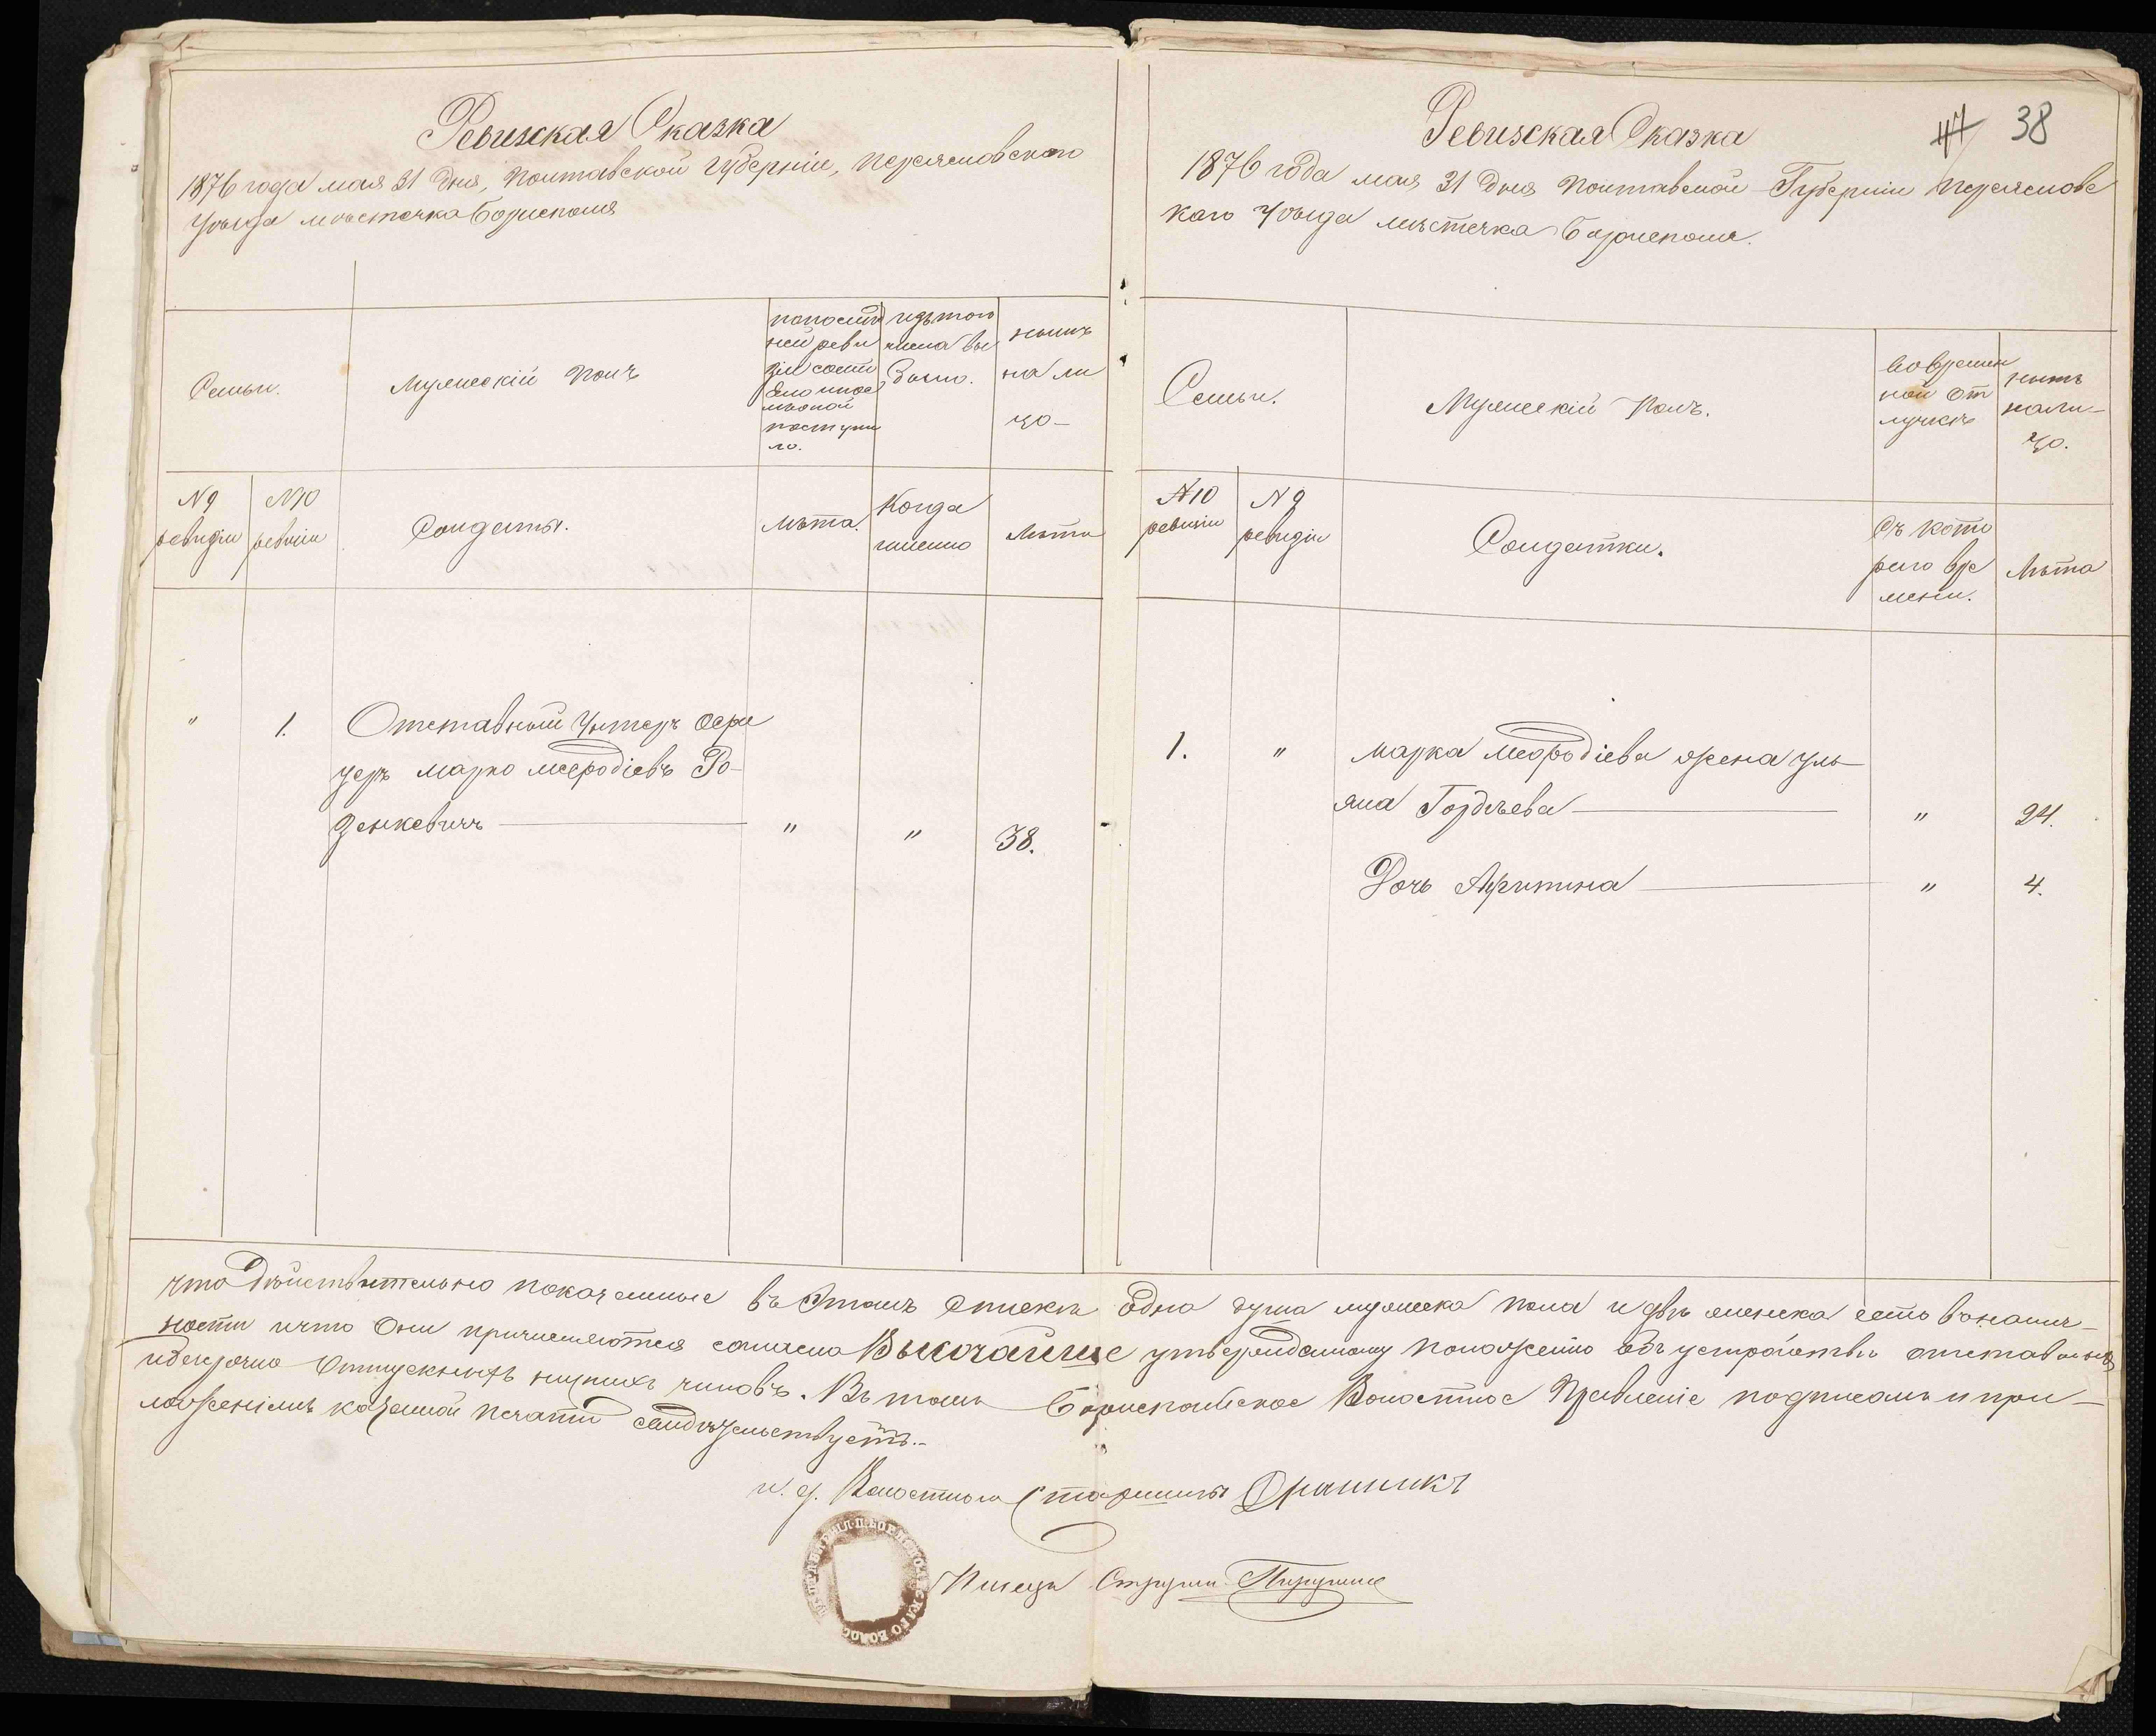 Ревизская Сказка
1876 года мая 31 дня, Полтавской Губерніи, Переясловского
Уѣзда мѣстечка Борисполя
Семьи.
Мужескій Полъ
по послѣд
ней реви
зіи состо
яло и после
оной
поступи
ло.
изъ того
числа вы
было.
нынѣ
на ли
цо
№ 9
ревизіи
№ 10
ревизіи
Солдаты.
Лѣта.
Когда
именно
Лѣта
" 1. Отставной Унтеръ Офи
церъ Марко Мефодіевъ Ро-
денкевичъ " " 38.
Ревизская Сказка
47 38
1876 года мая 31 дня Полтавской Губерніи Переясловс
каго Уѣзда мѣстечка Борисполя.
Семьи.
Мужескій Полъ.
во времен
ной от
лучкѣ
нынѣ
нали-
цо.
№ 10
ревизіи
№ 9
ревизіи
Солдатки.
Съ кото
раго вре
мени.
Лѣта
1. " Марка Мефодіева жена Уль
яна Гордѣева " 24.
Дочь Агрипина " 4.
что Дѣйствительно показанные въ этомъ спискѣ одна душа мужеска пола и двѣ женска есть в налич-
ности и что они причисляются согласно Высочайше утвержденному положенію объ устройствѣ отставныхъ
и безсрочно отпускныхъ нижнихъ чиновъ. Въ томъ Бориспольское Волостное Правленіе подписомъ и при-
ложеніемъ казенной печати свидѣтельствуетъ.-
и. д. Волостнаго Старшины
Писарь